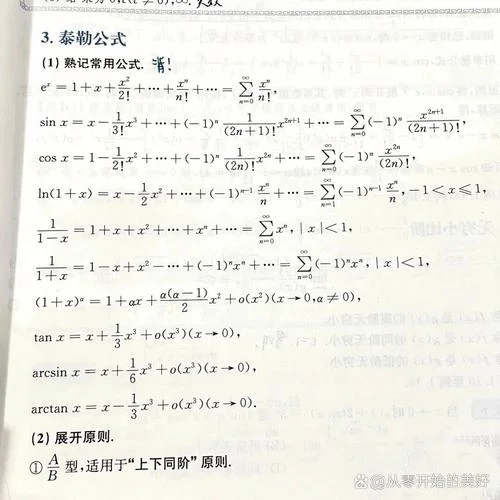 3. 泰勒公式
(1) 熟记常用公式. 背!
e^x = 1 + x + x^2/2! + ⋯ + x^n/n! + ⋯ = ∑_{n=0}^{∞} x^n/n!,
sin x = x − 1/3! x^3 + ⋯ + (−1)^n 1/(2n+1)! x^{2n+1} + ⋯ = ∑_{n=0}^{∞} (−1)^n x^{2n+1}/(2n+1)!,
cos x = 1 − 1/2! x^2 + ⋯ + (−1)^n 1/(2n)! x^{2n} + ⋯ = ∑_{n=0}^{∞} (−1)^n x^{2n}/(2n)!,
ln(1+x) = x − 1/2 x^2 + ⋯ + (−1)^{n−1} x^n/n + ⋯ = ∑_{n=1}^{∞} (−1)^{n−1} x^n/n, −1 < x ⩽ 1,
1/(1−x) = 1 + x + x^2 + ⋯ + x^n + ⋯ = ∑_{n=0}^{∞} x^n, |x| < 1,
1/(1+x) = 1 − x + x^2 − ⋯ + (−1)^n x^n + ⋯ = ∑_{n=0}^{∞} (−1)^n x^n, |x| < 1,
(1+x)^α = 1 + αx + α(α−1)/2 x^2 + o(x^2)(x→0, α≠0),
tan x = x + 1/3 x^3 + o(x^3)(x→0),
arcsin x = x + 1/6 x^3 + o(x^3)(x→0),
arctan x = x − 1/3 x^3 + o(x^3)(x→0).
(2) 展开原则.
① A/B 型,适用于“上下同阶”原则.
@从零开始的美好